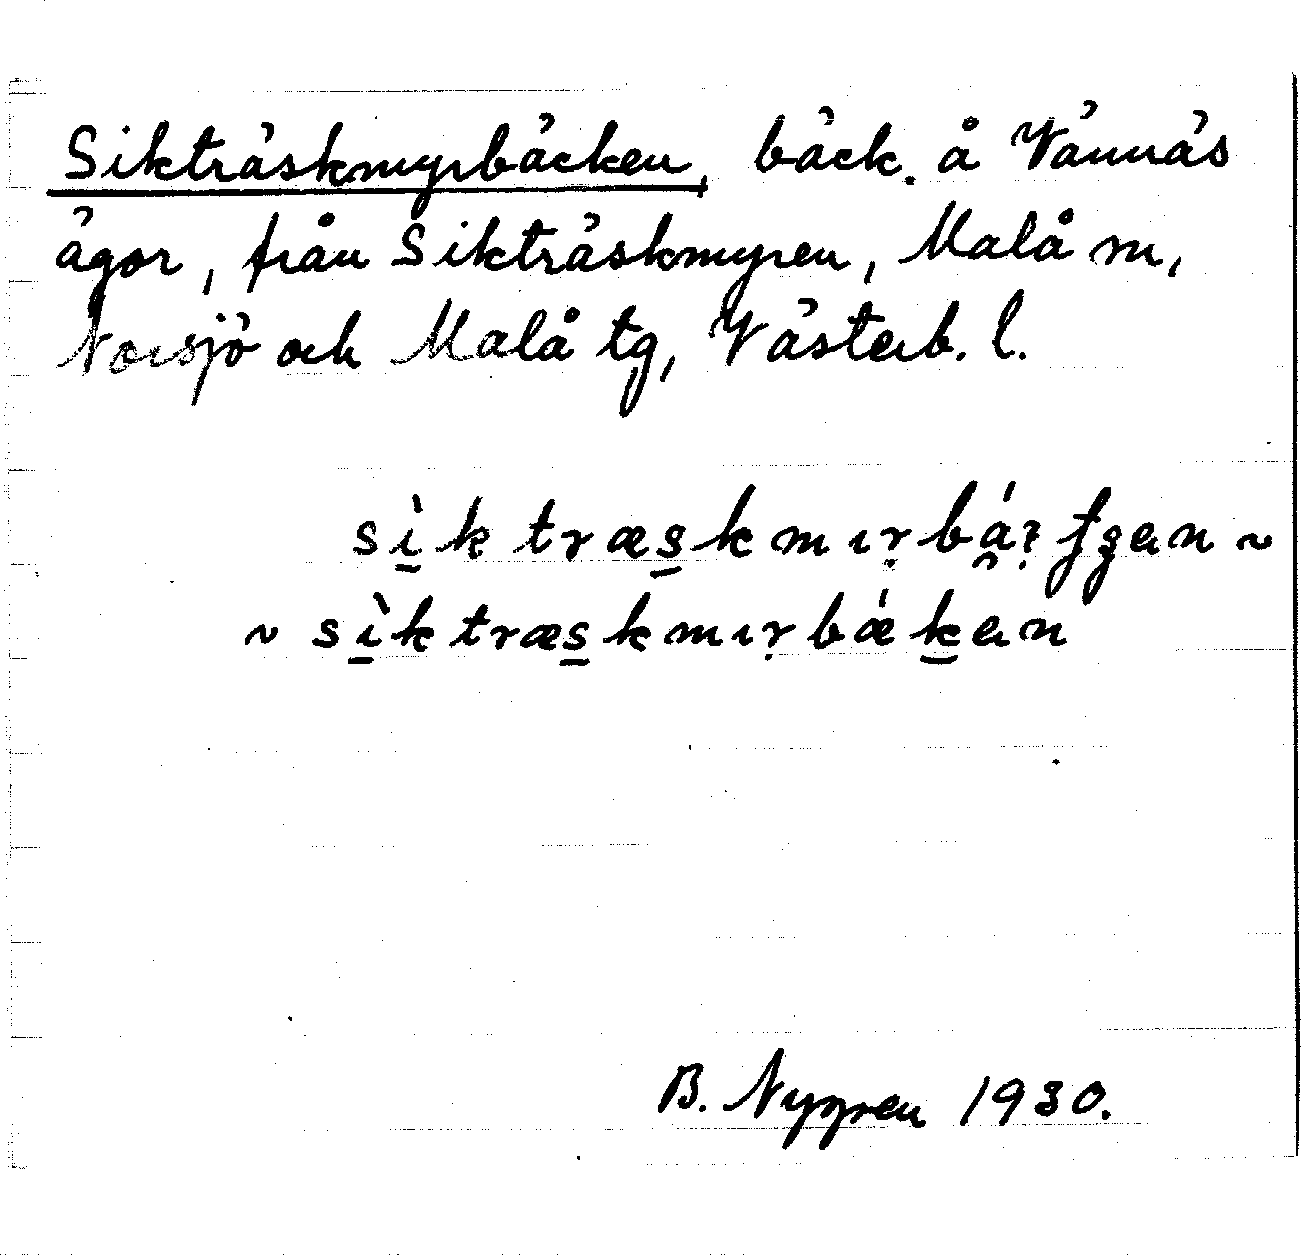 Sikträskmyrbäcken, bäck. å Vännäs
ägor, från Sikträskmyren, Malå sn,
Norsjö och Malå tg, Västerb. l.
sìktræskmıṛbá̯ʔʄʒen ~
~ sìktræskmıṛbǽken
B. Nygren 1930.